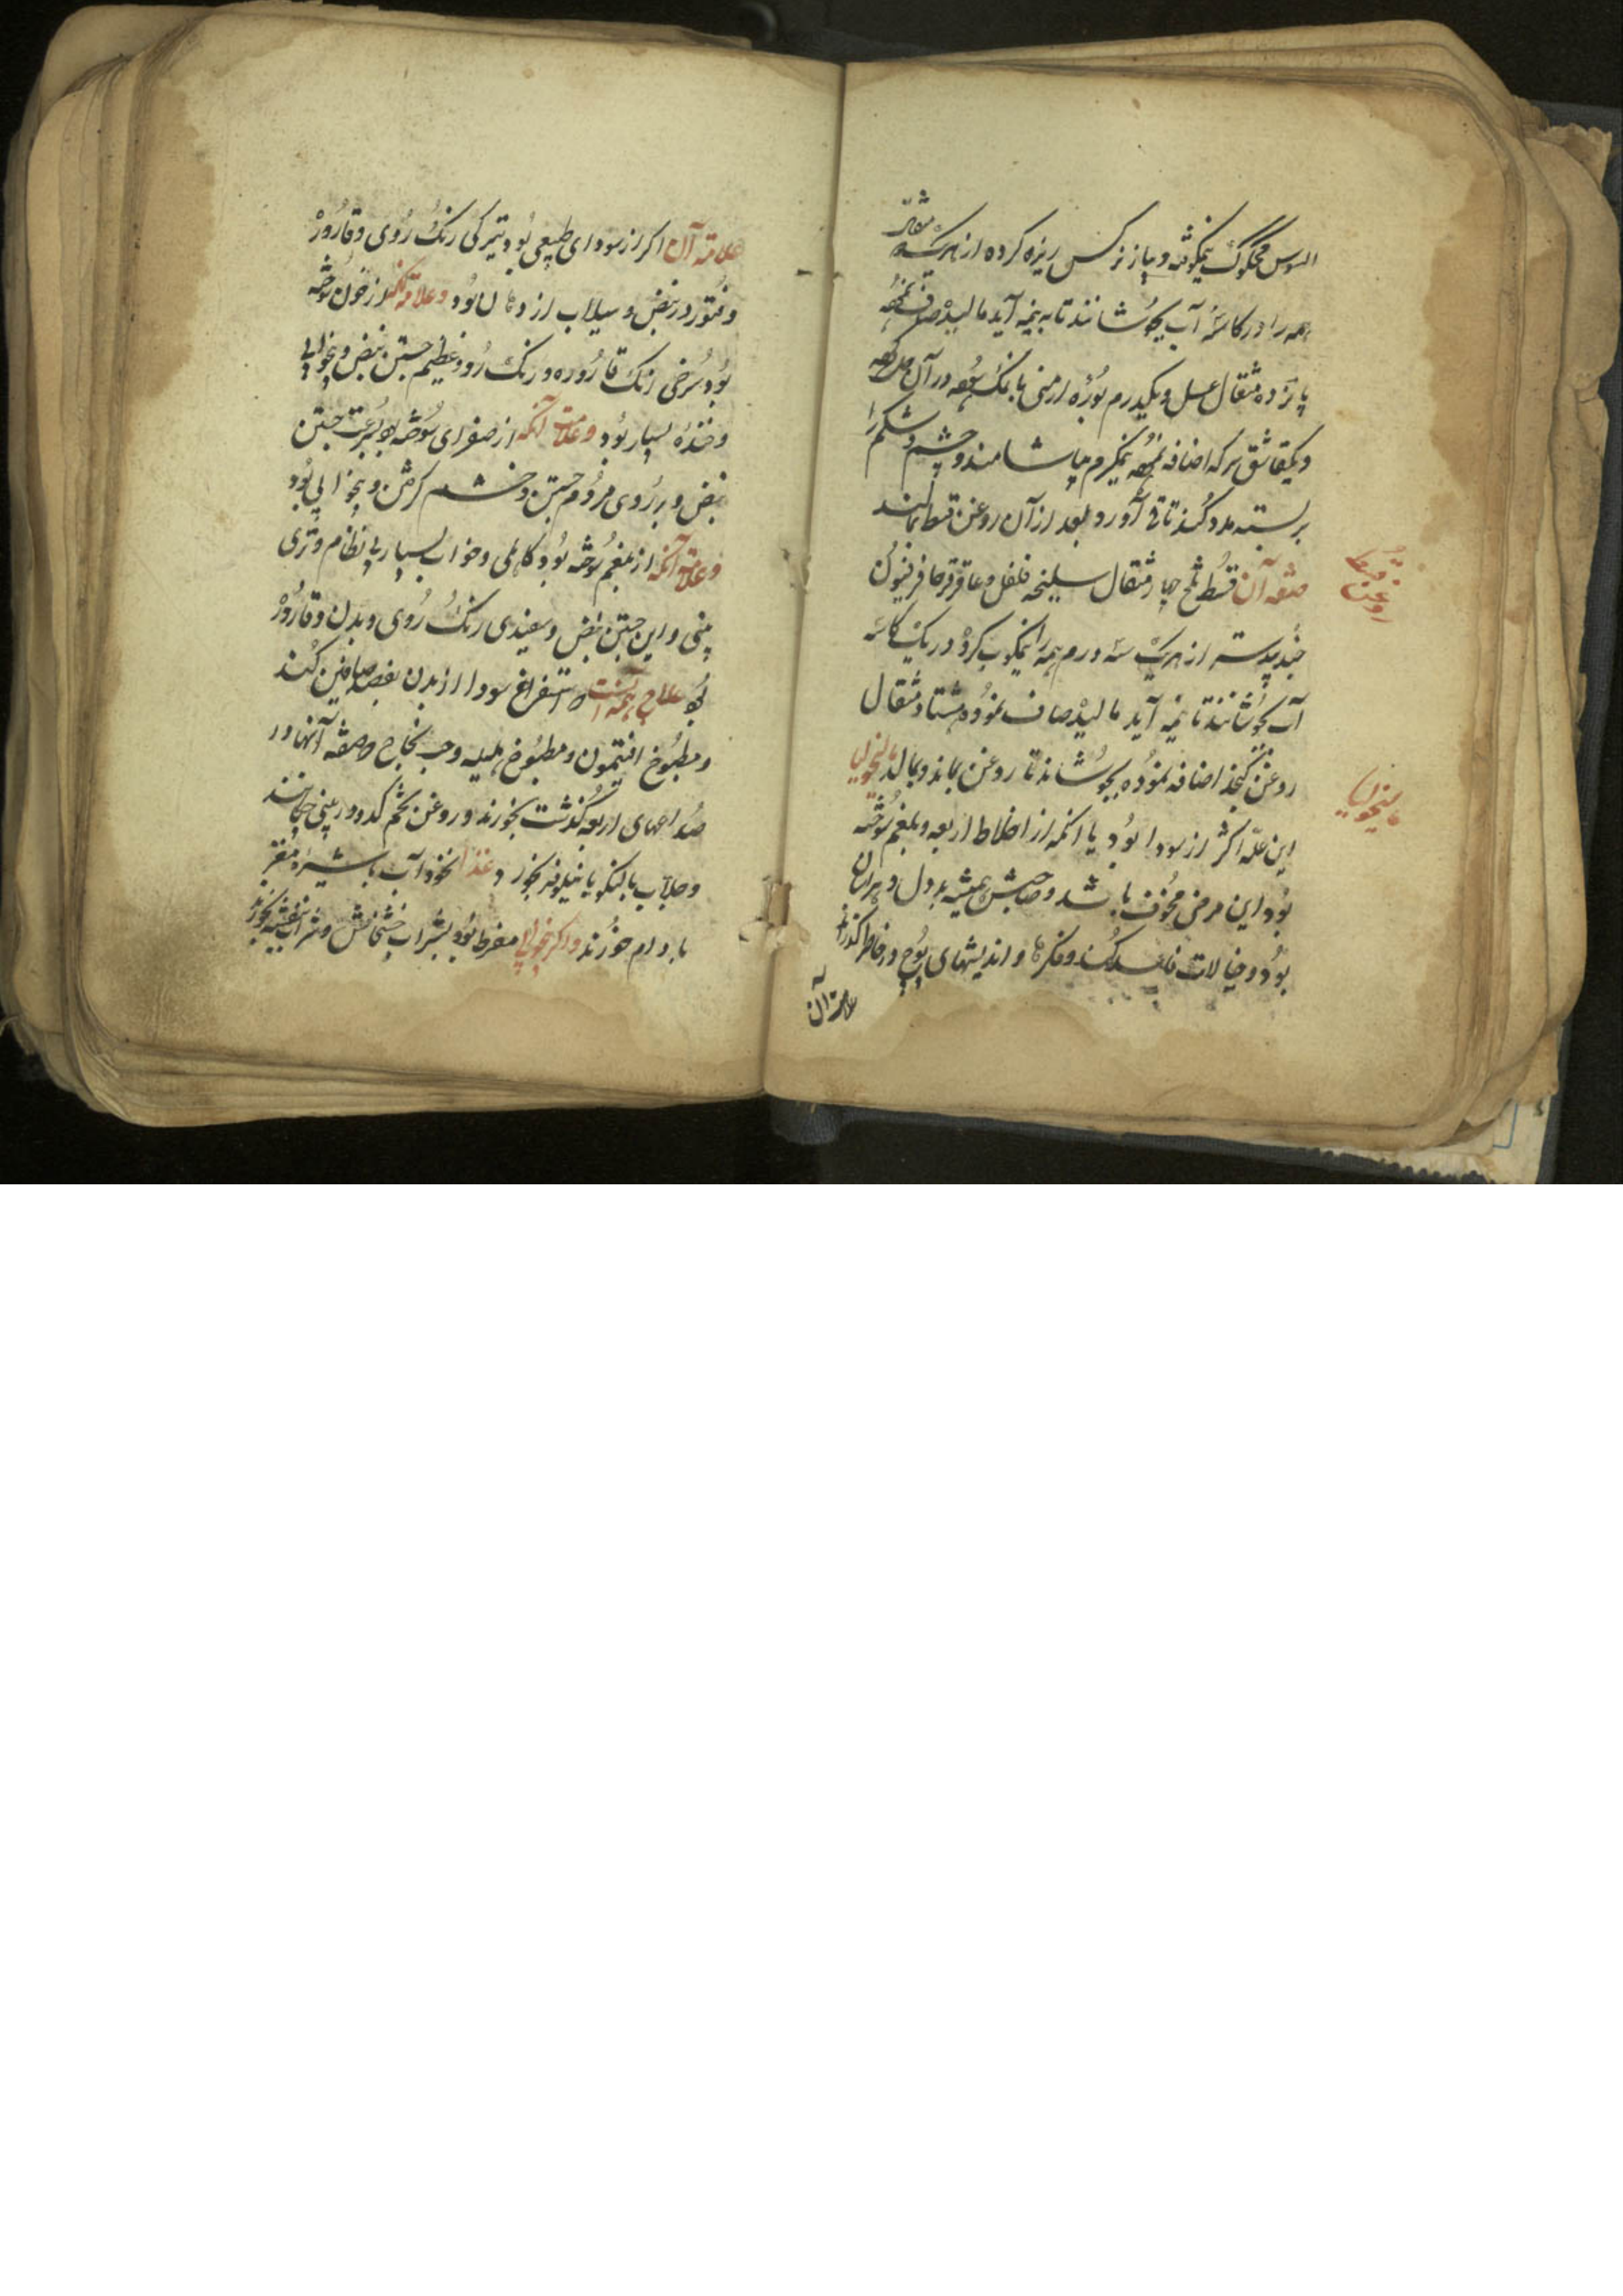 السوس محکوک نیمکوفته و پیاز نرکس ریزه کرده از هریک سه مثقال
همه را در کاسهٔ آب بجوشانند تا به نیمه آید مالیده صاف نموده
پانزده مثقال عسل و یکدرم بورهٔ ارمنی با نمک سوده در آن حل کرده
و یکقاشق سرکه اضافه نموده نیمکرم بیاشامند و چشم و شکم را
بر بسته مدد کنند تا قی آورد و بعد از آن روغن قسط بمالند
صفه آن قسط تلخ چهار مثقال سلیخه فلفل و عاقرقرحا فرفیون
جندبیدستر از هریک سه درم همه را نیمکوب کرده در یک کاسه
آب بجوشانند تا نیمه آید مالیده صاف نموده هشتاد مثقال
روغن کنجد اضافه نموده بجوشاند تا روغن بماند و بمالد مالیخولیا
این علة اکثر از سودا بود یا آنکه از اخلاط اربعه و بلغم سوخته
بود این مرض مخوف باشد و صاحبش همیشه بد دل و هراسان
بود و خیالات فاسد کند و فکرها و اندیشهای پوچ در خاطر گذراند
علامة آن
روغن قسط
مالیخولیا
علامة آن اکر از سودای طبیعی بود تیرکی رنک روی و قاروره
و فتور در نبض و سیلاب از دهان بود و علامة آنکه از خون سوخته
بود سرخی رنک قاروره و رنک رو و عظیم جستن نبض و بیخوابی
و خندهٔ بسیار بود و علامة آنکه از صفرای سوخته بود سرعت جستن
نبض و بر روی مردم جستن و خشم کرفتن و بیخوابی بود
و علامة آنکه از بلغم سوخته بود کاهلی و خواب بسیار بی نظام و تری
بینی و لین جستن نبض و سفیدی رنک روی و بدن و قاروره
بود علاج همه آنست که استفراغ سودا از بدن بفصد صافین کنند
و مطبوخ افتیمون و مطبوخ هلیله و حب نجاح و صفه آنها در
صداعهای اربعه گذشت بخورند و روغن تخم کدو در بینی چکانند
و جلاب بالنکو یا نیلوفر بخورند و غذا نخودآب با شیره مغز
بادام خورند و اکر بیخوابی مفرط بود شراب خشخاش و شراب بنفشه بخورند